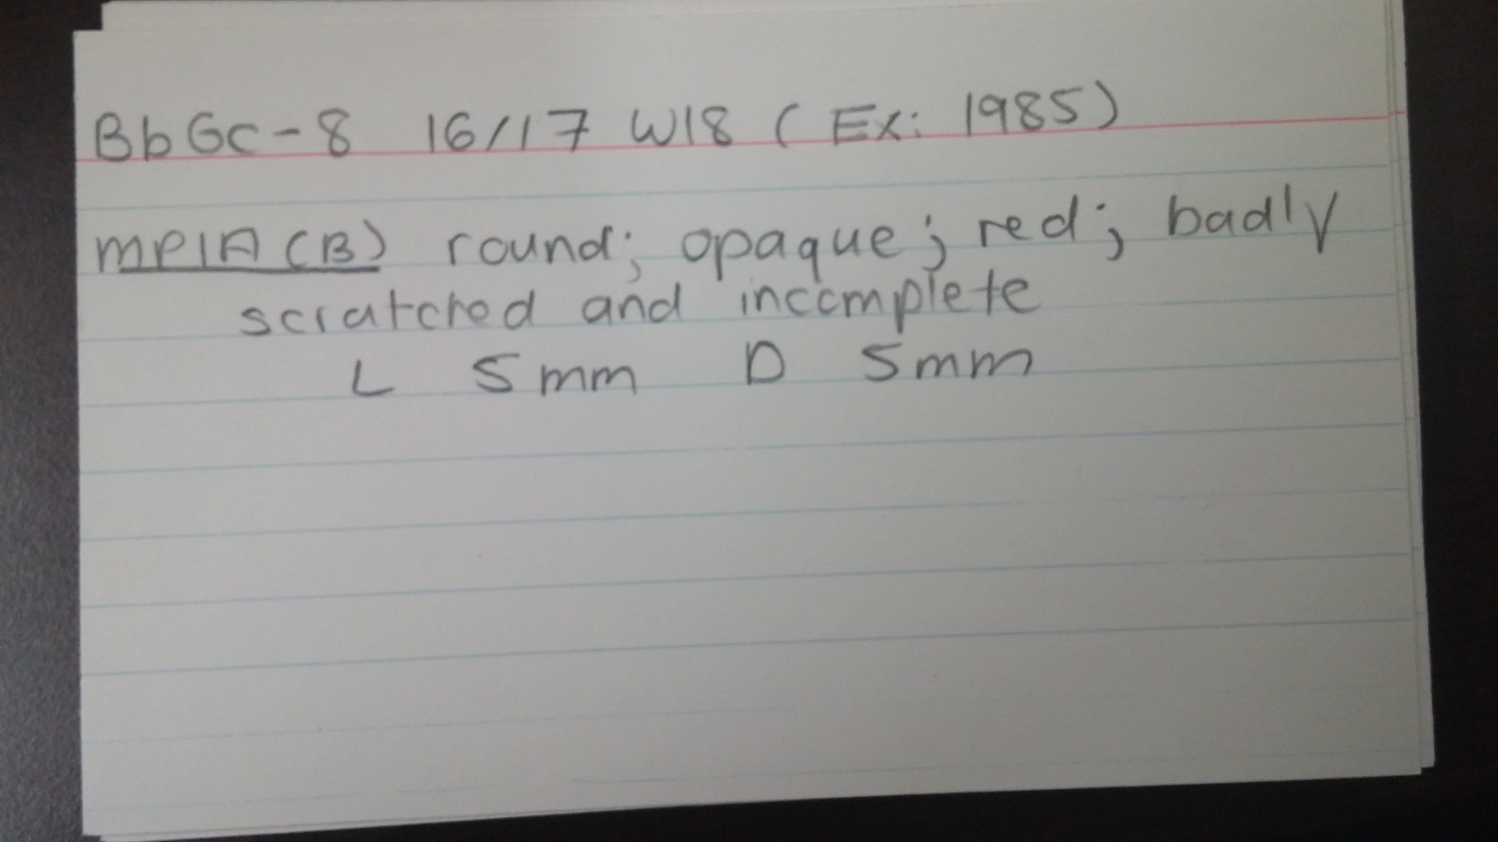 BbGc-8 16/17 W18 (Ex: 1985)
MPIA(B) round; opaque; red; badly
scratched and incomplete
L 5mm D 5mm